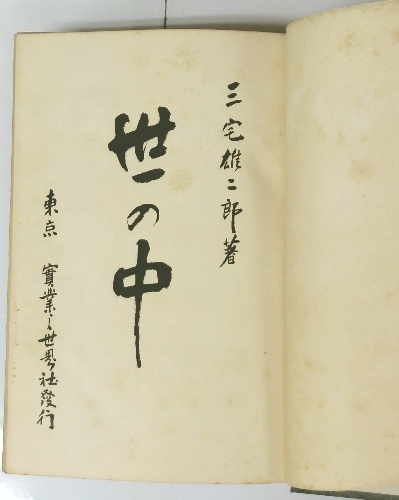 三宅雄二郎著
世の中
東京 實業之世界社發行